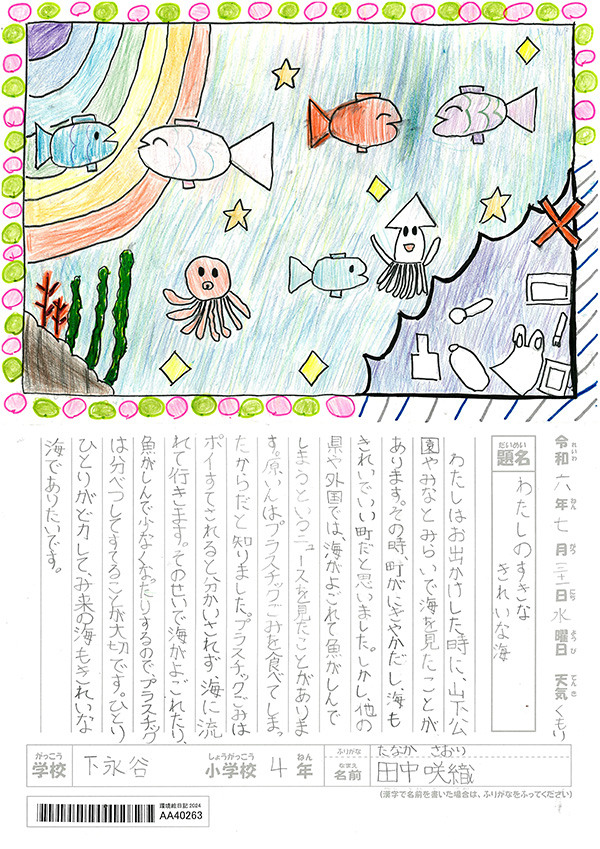 令和六年七月三十一日水曜日 天気くもり
れいわ ねん がつ にち ようび てんき
だいめい
題名
わたしのすきな
きれいな海
わたしはお出かけした時に、山下公
園やみなとみらいで海を見たことが
あります。その時、町がにぎやかだし、海も
きれいでいい町だと思いました。しかし、他の
県や外国では、海がよごれて魚がしんで
しまうというニュースを見たことがありま
す。原いんはプラスチックごみを食べてしまっ
たからだと知りました。プラスチックごみは
ポイすてされると、分かいされず海に流
れて行きます。そのせいで海がよごれたり、
魚がしんで少なくなったりするので、プラスチック
は分べつしてすてることが大切です。ひとり
ひとりがど力して、み来の海もきれいな
海でありたいです。
がっこう
学校
下永谷
しょうがっこう
小学校
4
ねん
年
ふりがな
たなか さおり
なまえ
名前
田中咲織
(漢字で名前を書いた場合は、ふりがなをふってください)
環境絵日記 2024
AA40263